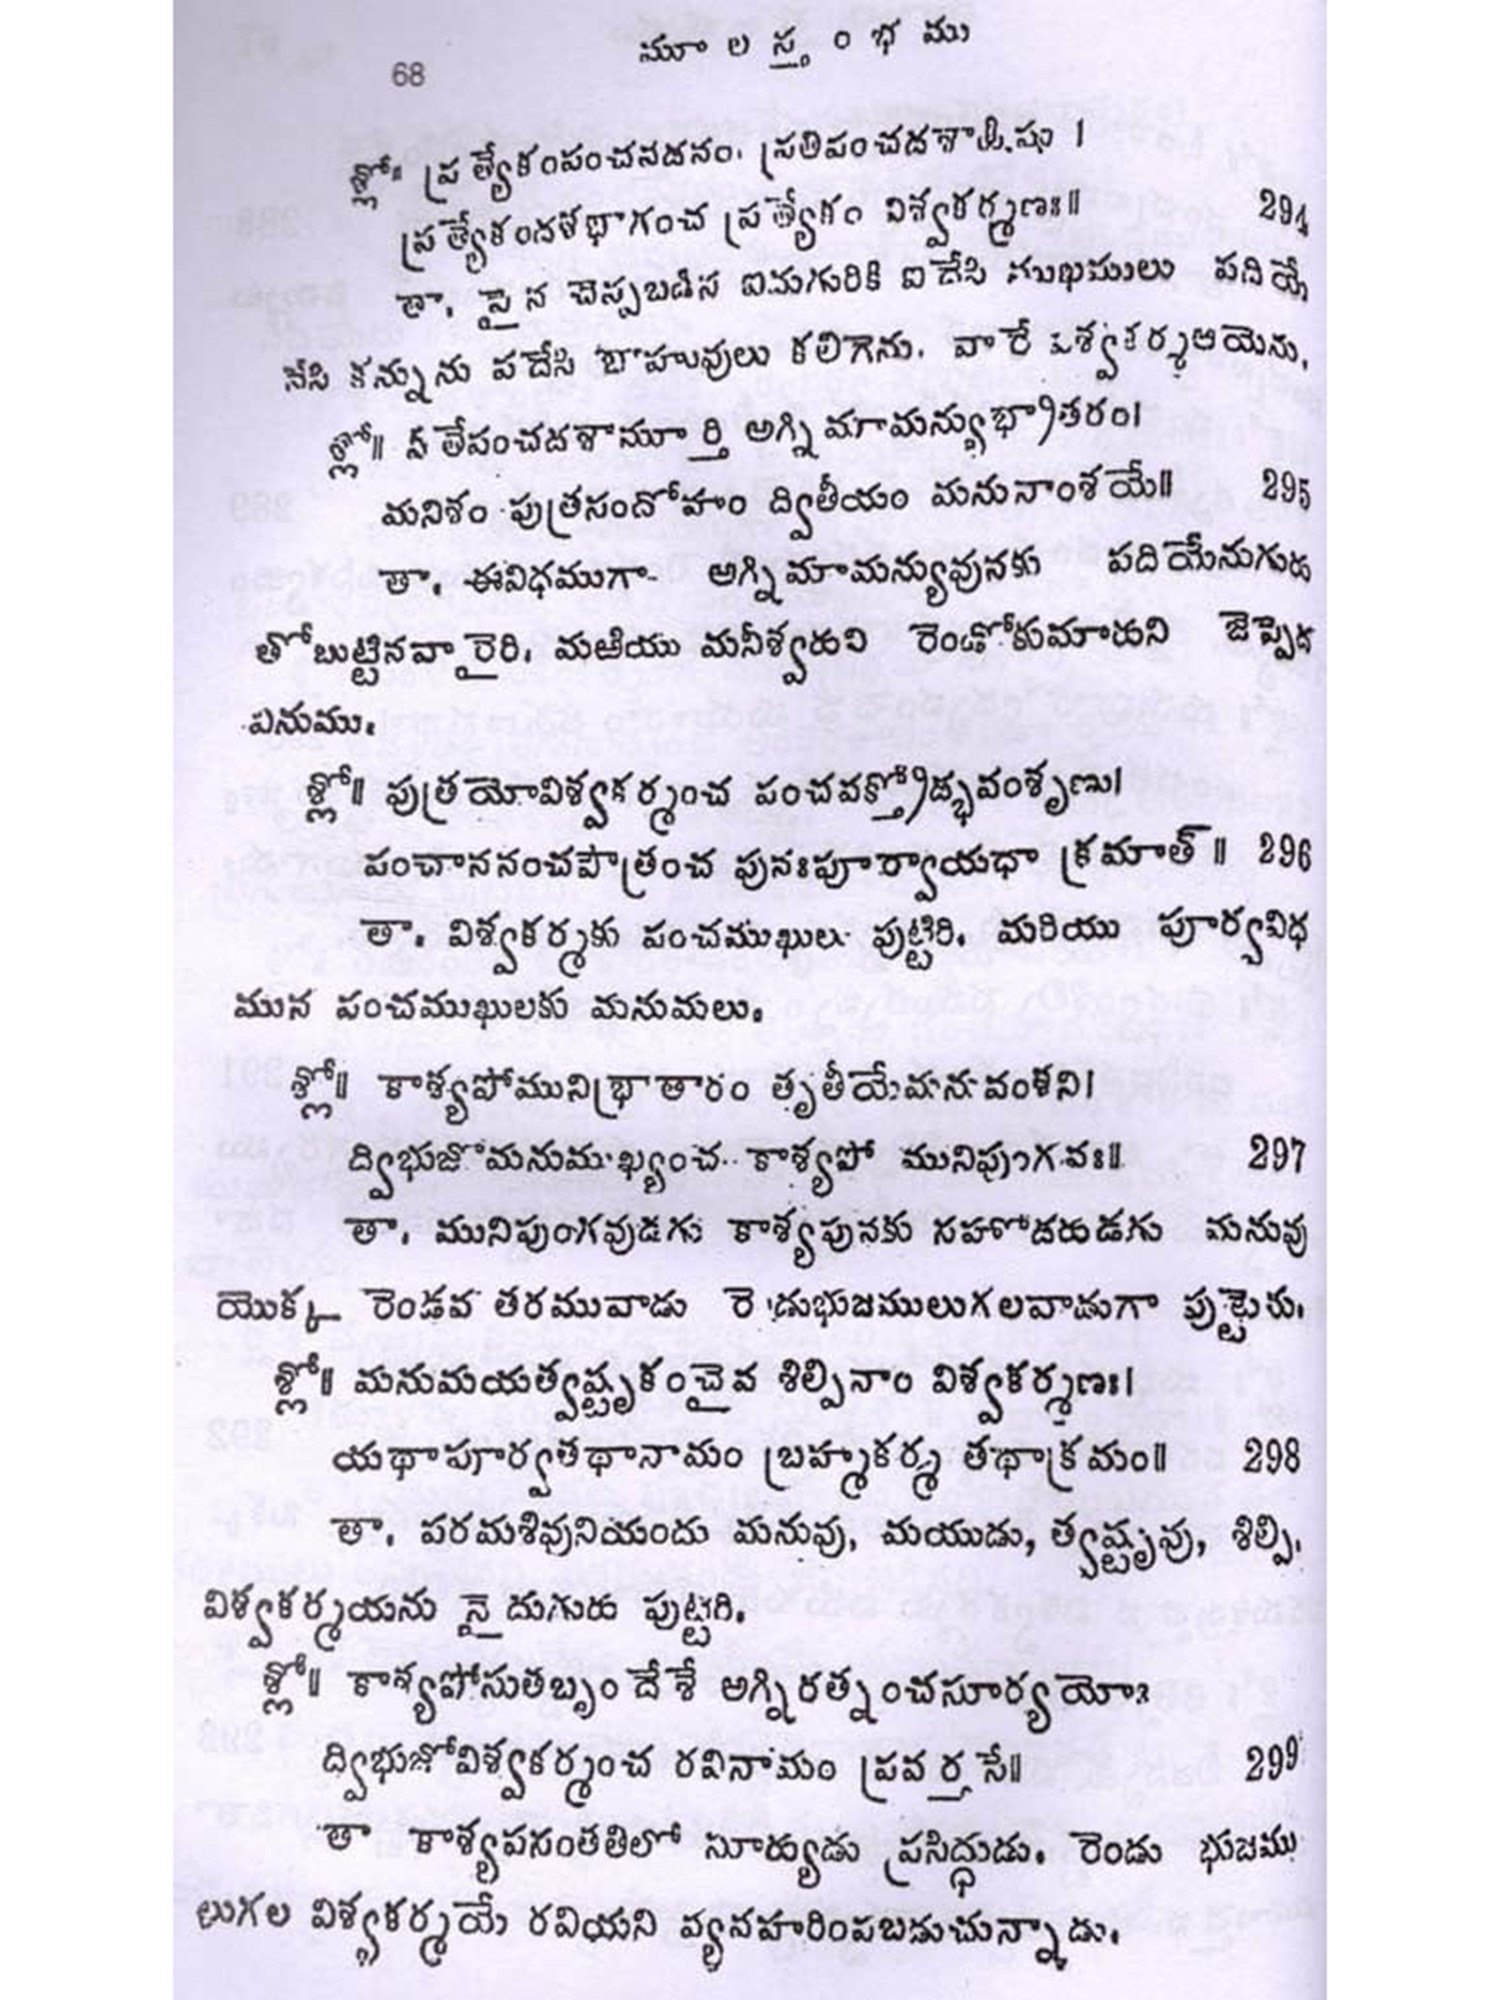 మూ ల స్తం భ ము
68
శ్లో॥ ప్రత్యేకంపంచవదనం ప్రతిపంచదశాక్షిషు ।
ప్రత్యేకందశభాగంచ ప్రత్యేకం విశ్వకర్మణః॥ 294
తా. పైన చెప్పబడిన ఐదుగురికి ఐదేసి ముఖములు పదియే
నేసి కన్నును పదేసి బాహువులు కలిగెను. వారే విశ్వకర్మఆయెను.
శ్లో॥ సతేపంచదశామూర్తి అగ్నిమామన్యుభ్రాతరం।
మనిశం పుత్రసందోహం ద్వితీయం మనునాంశయే॥ 295
తా. ఈవిధముగా అగ్నిమామన్యువునకు పదియేనుగురు
తోబుట్టినవారైరి. మఱియు మనీశ్వరుని రెండోకుమారుని జెప్పెద
వినుము.
శ్లో॥ పుత్రయోవిశ్వకర్మంచ పంచవక్త్రోద్భవంశృణు।
పంచాననంచపౌత్రంచ పునఃపూర్వాయధా క్రమాత్॥ 296
తా. విశ్వకర్మకు పంచముఖులు పుట్టిరి. మరియు పూర్వవిధ
మున పంచముఖులకు మనుమలు.
శ్లో॥ కాశ్యపోమునిభ్రాతారం తృతీయేమనువంశని।
ద్విభుజోమనుముఖ్యంచ కాశ్యపో మునిపుంగవః॥ 297
తా. మునిపుంగవుడగు కాశ్యపునకు సహోదరుడగు మనువు
యొక్క రెండవ తరమువాడు రెండుభుజములుగలవాడుగా పుట్టెను.
శ్లో॥ మనుమయత్వష్టృకంచైవ శిల్పినాం విశ్వకర్మణః।
యథాపూర్వతథానామం బ్రహ్మకర్మ తథాక్రమం॥ 298
తా. పరమశివునియందు మనువు, మయుడు, త్వష్టృవు, శిల్పి.
విశ్వకర్మయను నైదుగురు పుట్టిరి.
శ్లో॥ కాశ్యపోసుతబృందేశే అగ్నిరత్నంచసూర్యయోః
ద్విభుజోవిశ్వకర్మంచ రవినామం ప్రవర్తసే॥ 299
తా కాశ్యపసంతతిలో సూర్యుడు ప్రసిద్ధుడు. రెండు భుజము
లుగల విశ్వకర్మయే రవియని వ్యవహరింపబడుచున్నాడు.